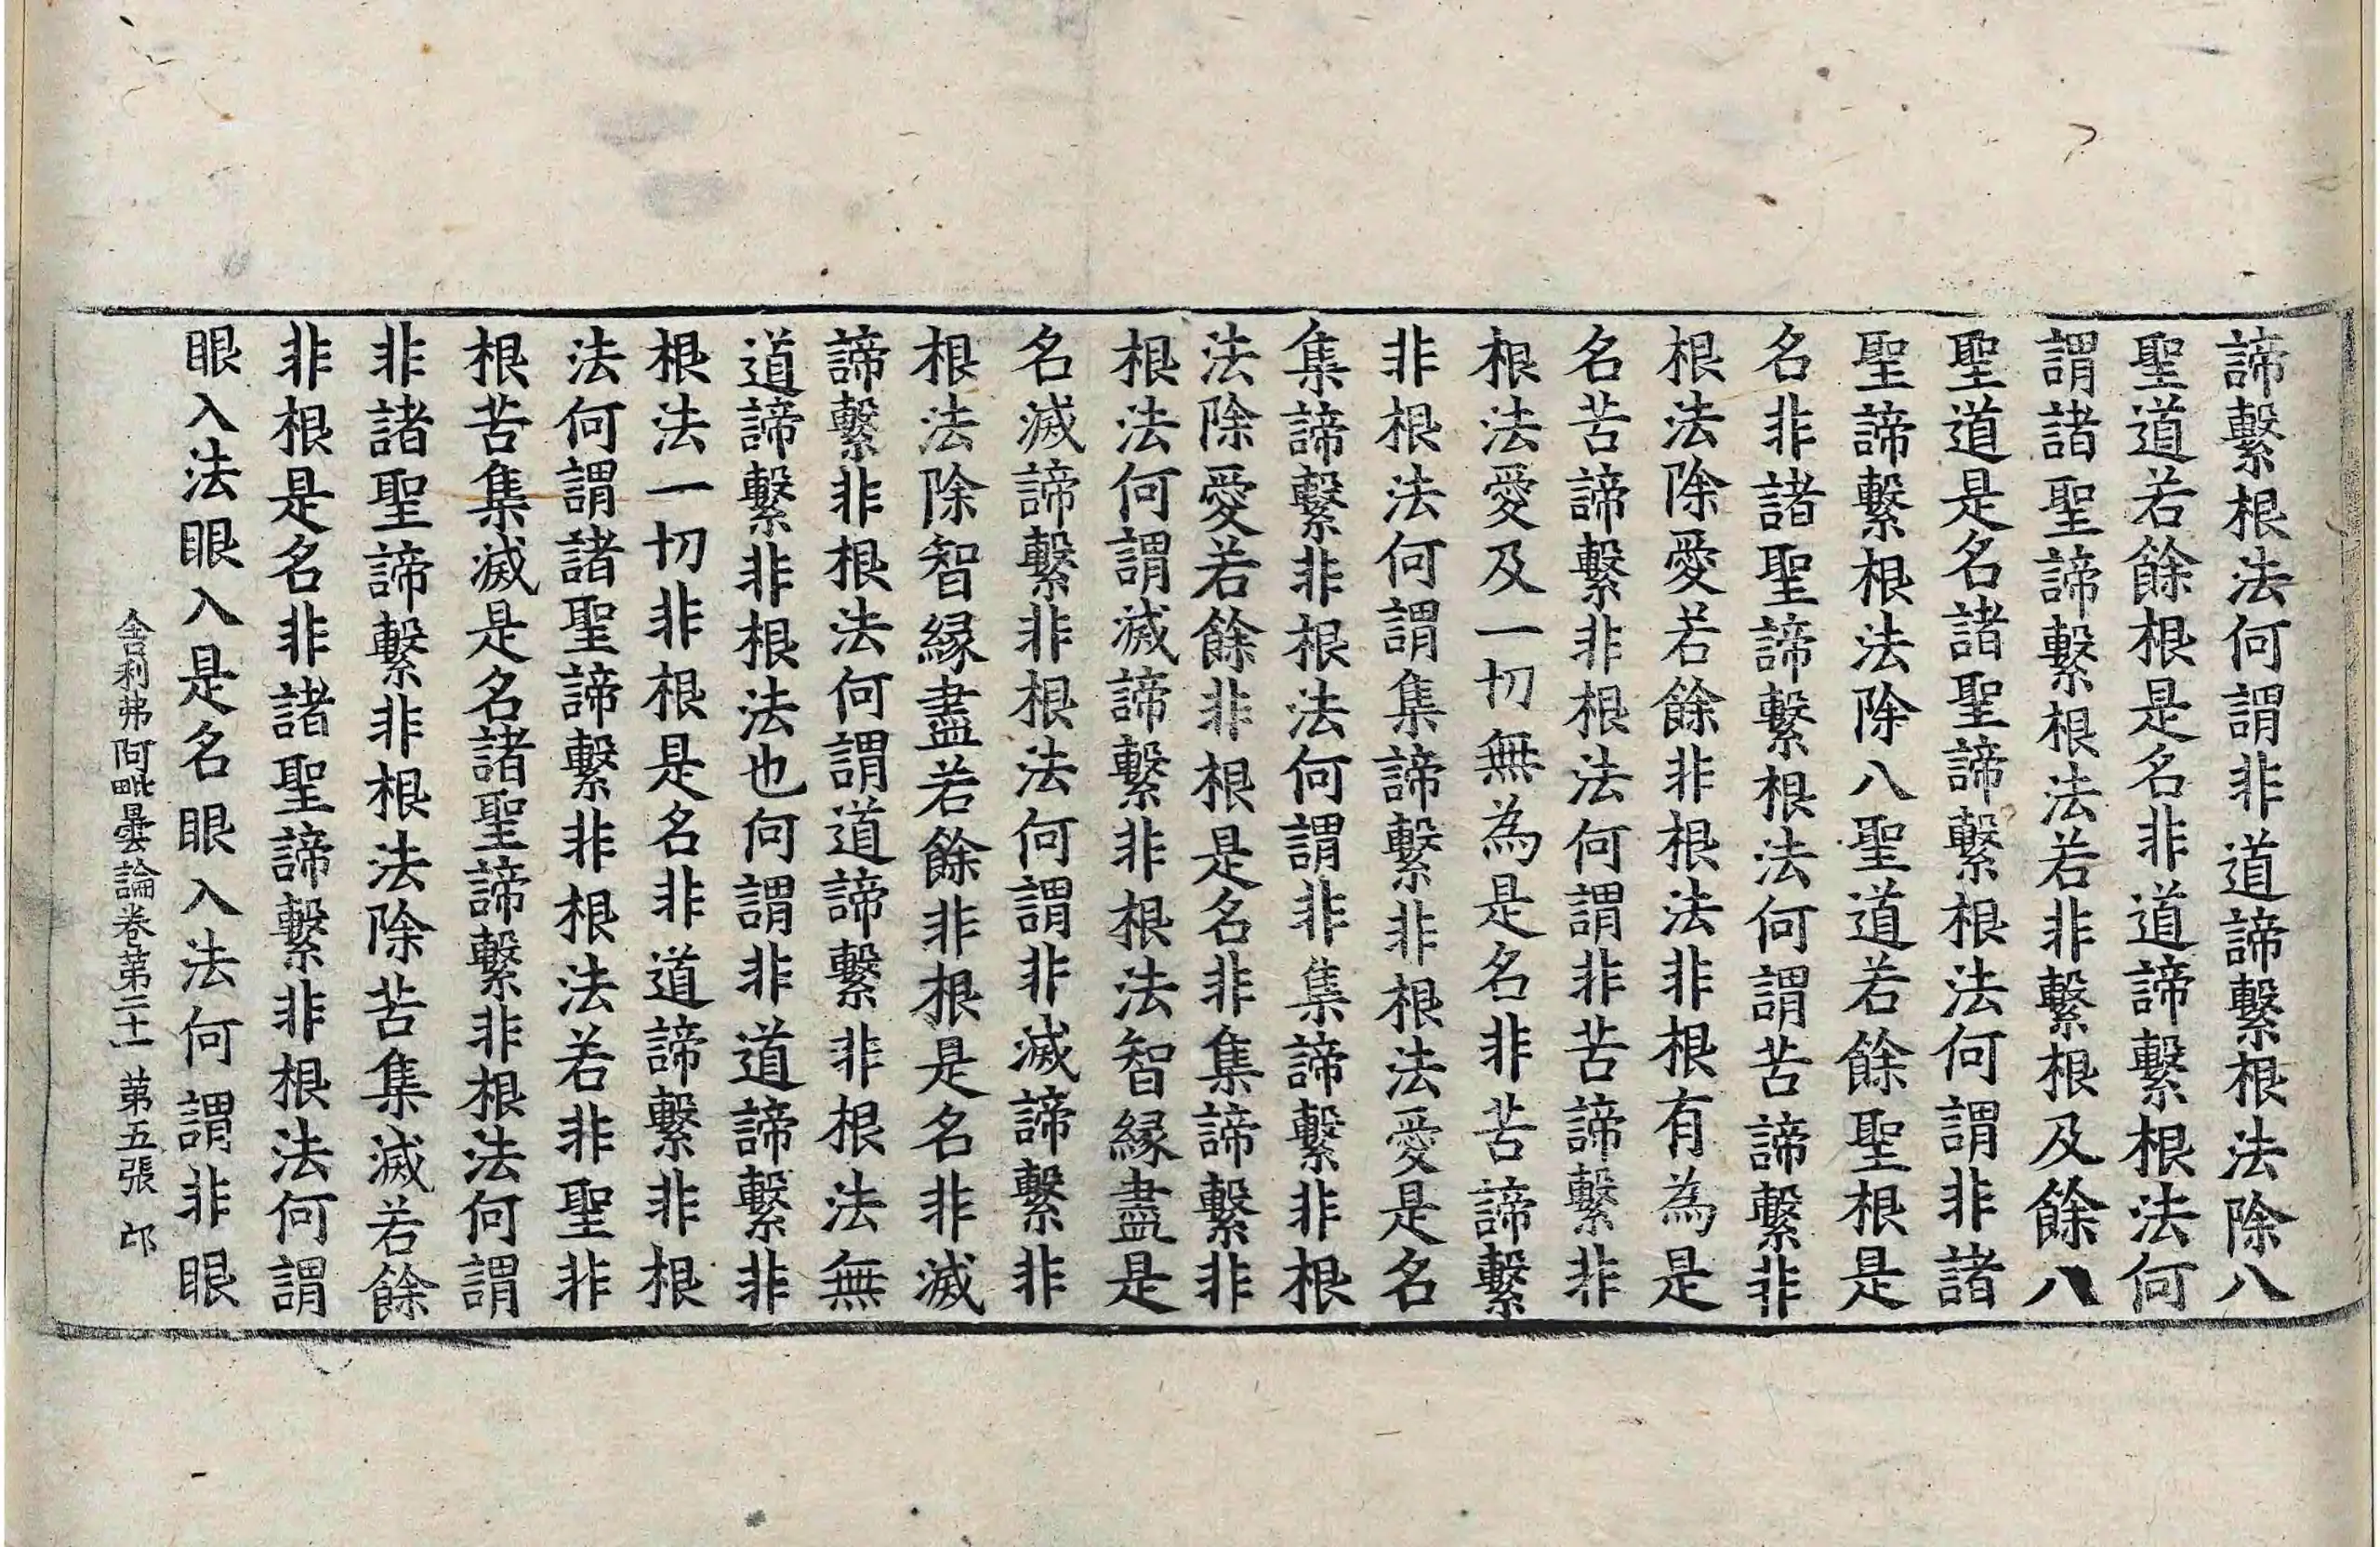 諦繫根法何謂非道諦繫根法除八
聖道若餘根是名非道諦繫根法何
謂諸聖諦繫根法若非繫根及餘八
聖道是名諸聖諦繫根法何謂非諸
聖諦繫根法除八聖道若餘聖根是
名非諸聖諦繫根法何謂苦諦繫非
根法除愛若餘非根法非根有為是
名苦諦繫非根法何謂非苦諦繫非
根法愛及一切無為是名非苦諦繫
非根法何謂集諦繫非根法愛是名
集諦繫非根法何謂非集諦繫非根
法除愛若餘非根是名非集諦繫非
根法何謂滅諦繫非根法智緣盡是
名滅諦繫非根法何謂非滅諦繫非
根法除智緣盡若餘非根是名非滅
諦繫非根法何謂道諦繫非根法無
道諦繫非根法也何謂非道諦繫非
根法一切非根是名非道諦繫非根
法何謂諸聖諦繫非根法若非聖非
根苦集滅是名諸聖諦繫非根法何謂
非諸聖諦繫非根法除苦集滅若餘
非根是名非諸聖諦繫非根法何謂
眼入法眼入是名眼入法何謂非眼
舍利弗阿毗曇論卷第二十一 第五張 卭